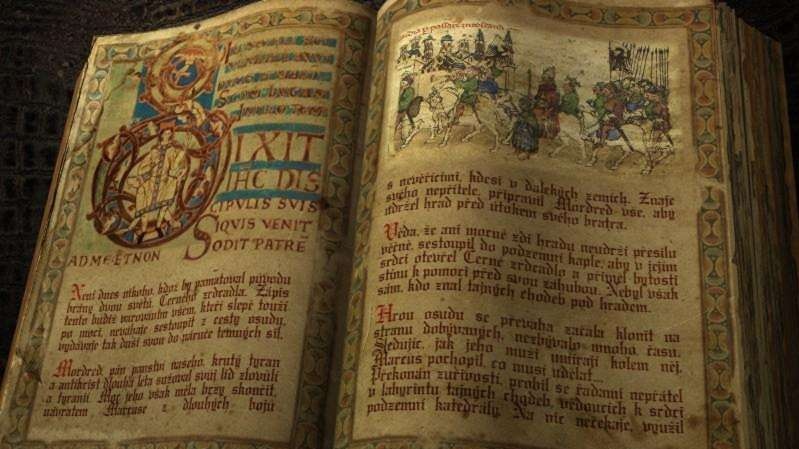 DIXIT
IHC DIS
CIPULIS SUIS
SIQUIS VENIT
AD ME ET NON
SODIT PATRE
Není dnes nikoho, kdož by pamatoval původu
brány dvou světů, Černého zrdcadla. Zápis
tento budiž varováním všem, kteří slepě touží
po moci, neváhaje sestoupit z cesty osudu,
vydávaje tak duši svou do náruče temných sil.
Mordred, pán panství našeho, krutý tyran
a antikrist dlouhá léta sužoval svůj lid zlovůlí
a tyranií. Moc jeho však měla brzy skončit,
návratem Marcuse z dlouhých bojů
s nevěřícími, kdesi v dalekých zemích. Znaje
svého nepřítele, připravil Mordred vše, aby
udržel hrad před útokem svého bratra.
Věda, že ani mocné zdi hradu neudrží přesilu
věčně, sestoupil do podzemní kaple, aby v jejím
srdci otevřel Černé zrdcadlo a přivel bytosti
stínu k pomoci před svou záhubou. Nebyl však
sám, kdo znal tajných chodeb pod hradem.
Hrou osudu se převaha začala klonit na
stranu dobývaných, nezbývalo mnoho času.
Sledujíc, jak jeho muži umírají kolem něj,
Marcus pochopil, co musí udělat...
Překonán zuřivostí, probil se řadami nepřátel
v labyrintu tajných chodeb, vedoucích k srdci
podzemní katedrály. Na nic nečekaje, využil